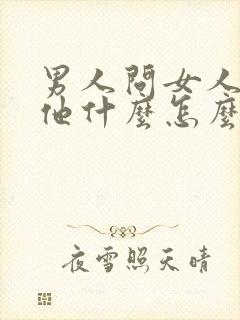 男人問女人
他什麼怎麼
夜雪照天晴